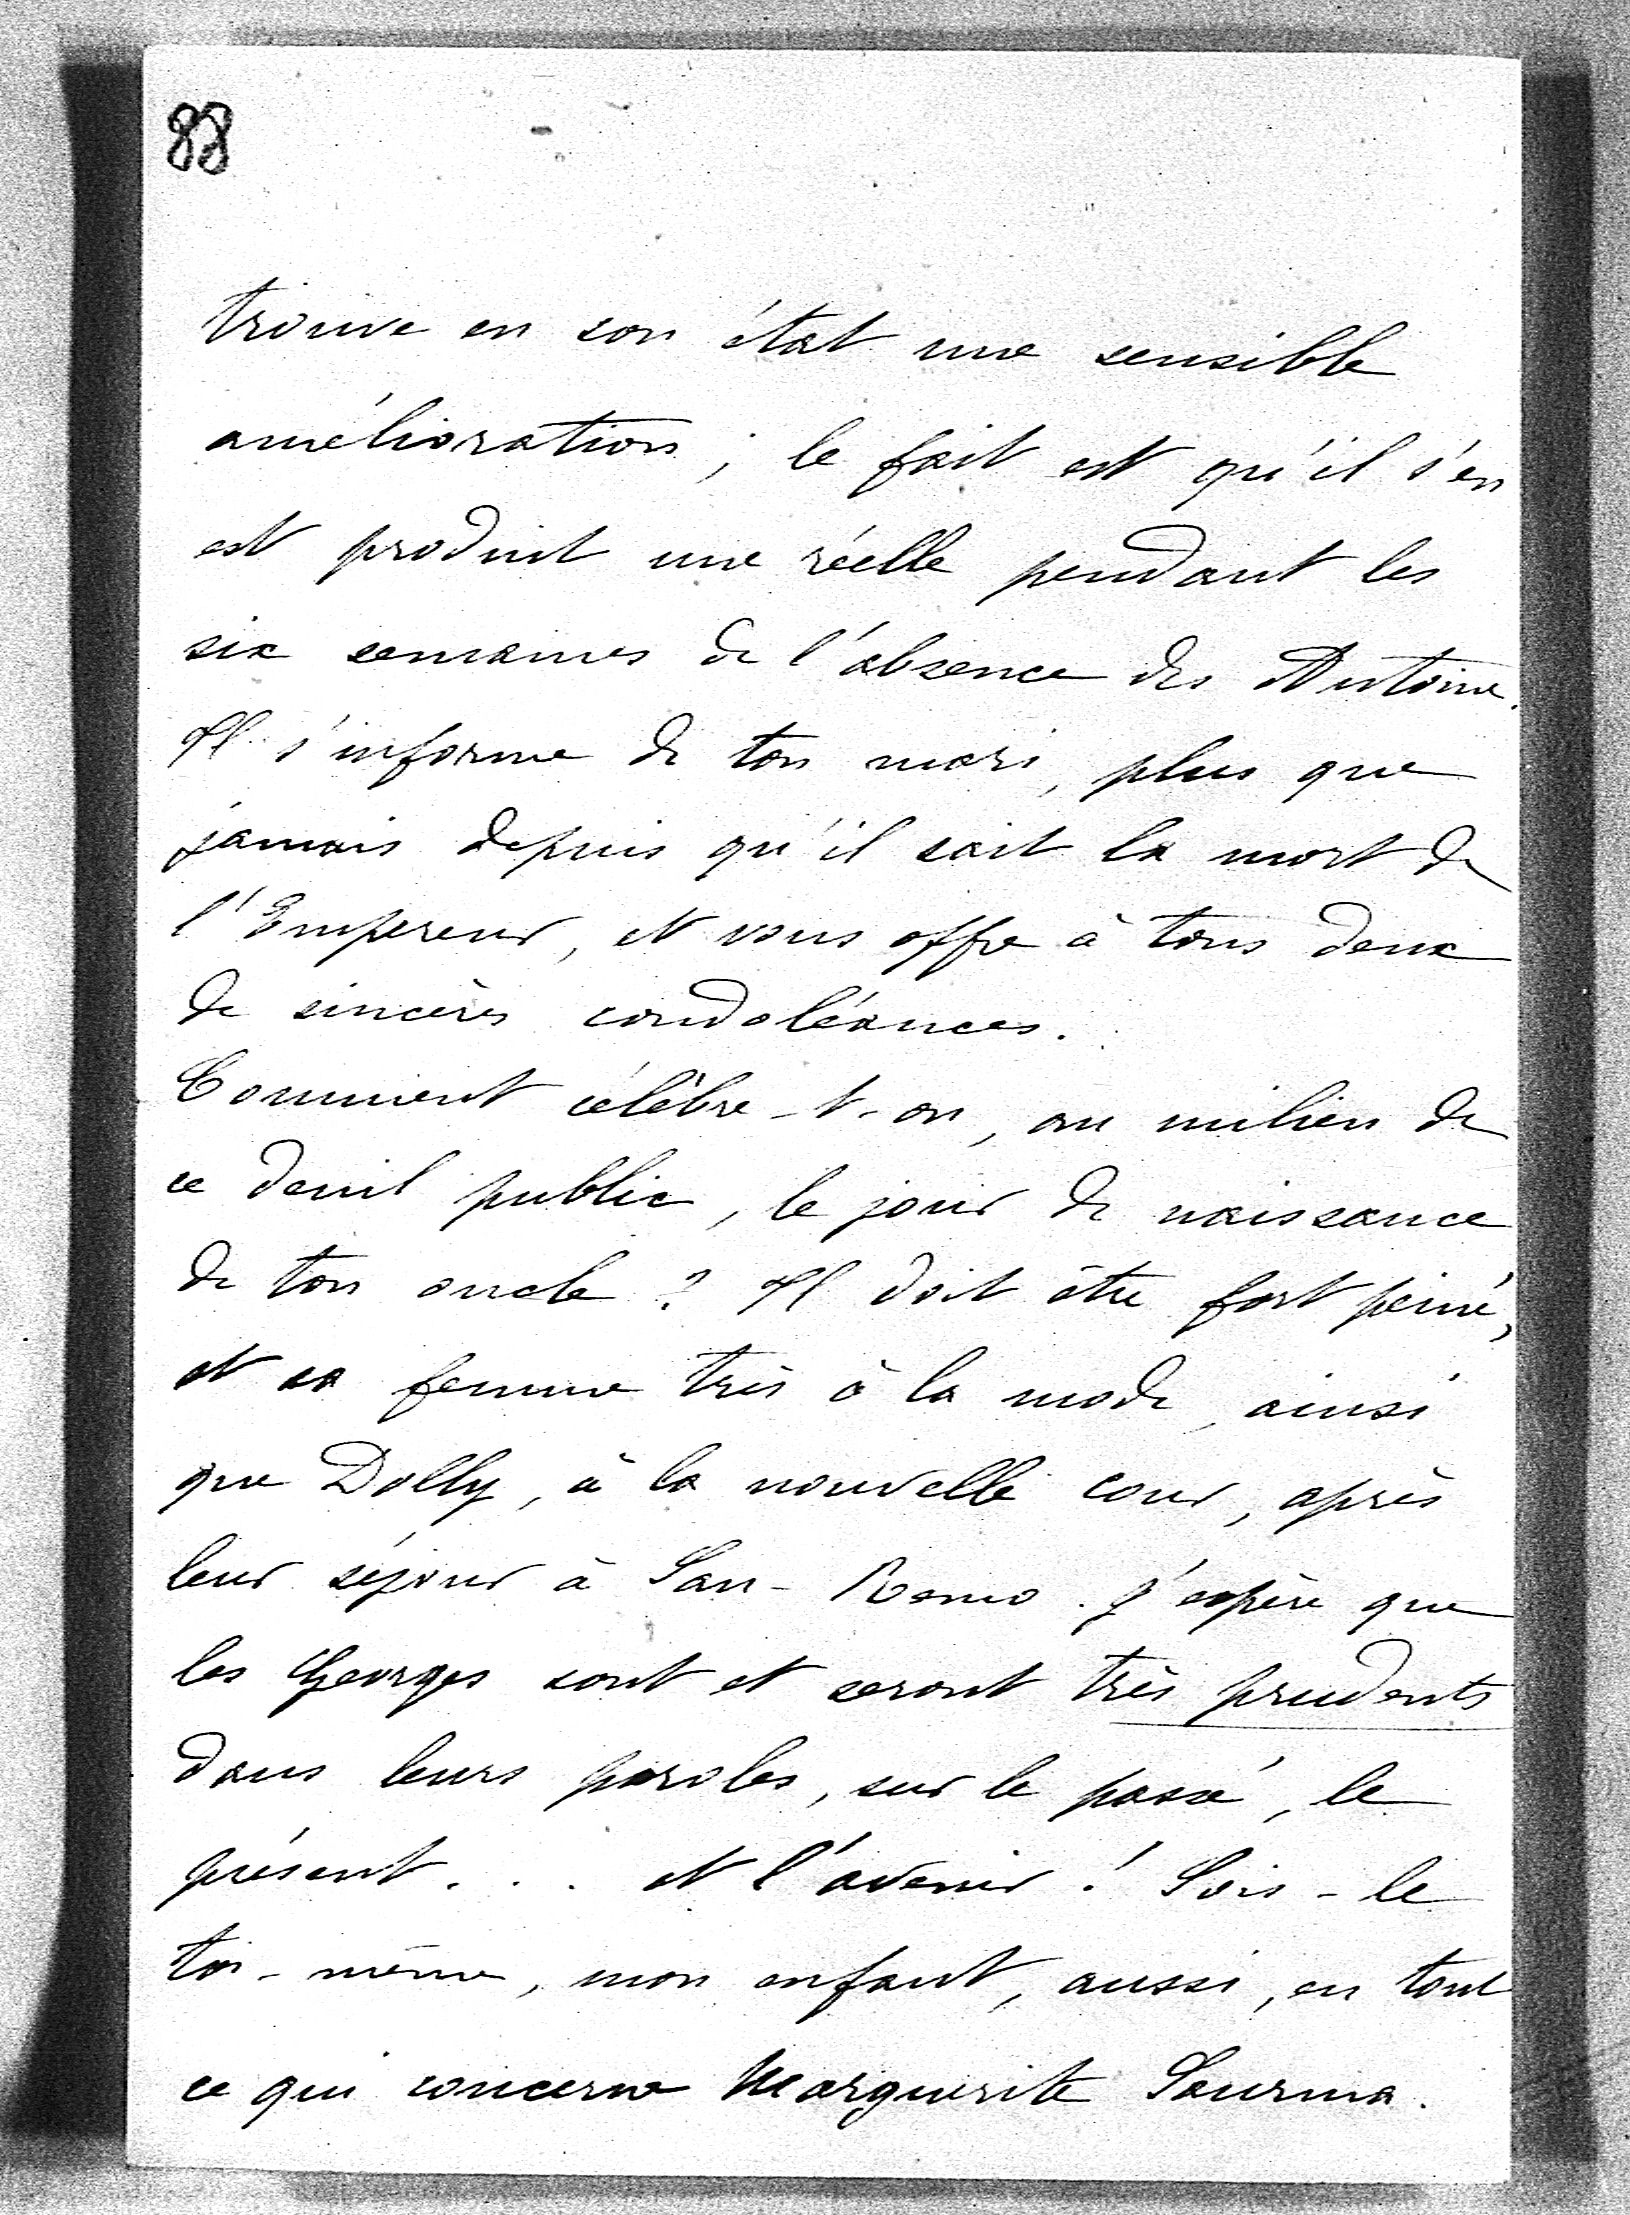 88
trouve en son état une sensible
amélioration ; le fait est qu'il s'en
est produit une réelle pendant les
six semaines de l'absence des Antoine.
Il s'informe de ton mari, plus que
jamais depuis qu'il sait la mort de
l'Empereur, et vous offre à tous deux
de sincères condoléances.
Comment célèbre-t-on, au milieu de
ce deuil public, le jour de naissance
de ton oncle ? Il doit être fort peiné,
et sa femme très à la mode, ainsi
que Dolly, à la nouvelle cour, après
leur séjour à San-Remo. J'espère que
les Georges sont et seront très prudents
dans leurs paroles, sur le passé, le
présent . . . et l'avenir ! Sois-le
toi-même, mon enfant, aussi, en tout
ce qui concerne Marguerite Saurma.